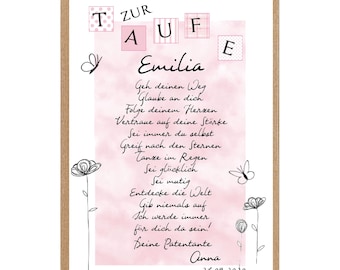 ZUR
TAUFE
Emilia
Geh deinen Weg
Glaube an dich
Folge deinem Herzen
Vertraue auf deine Stärke
Sei immer du selbst
Greif nach den Sternen
Tanze im Regen
Sei glücklich
Sei mutig
Entdecke die Welt
Gib niemals auf
Ich werde immer
für dich da sein!
Deine Patentante
Anna